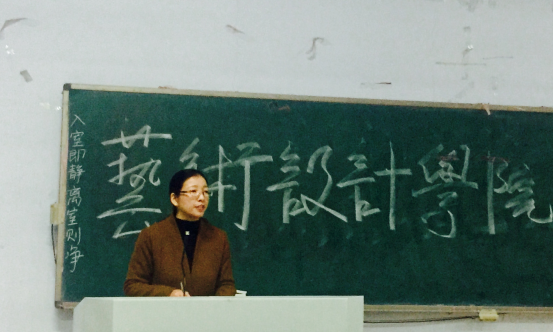 入室即静 离室则净
藝術設計學院